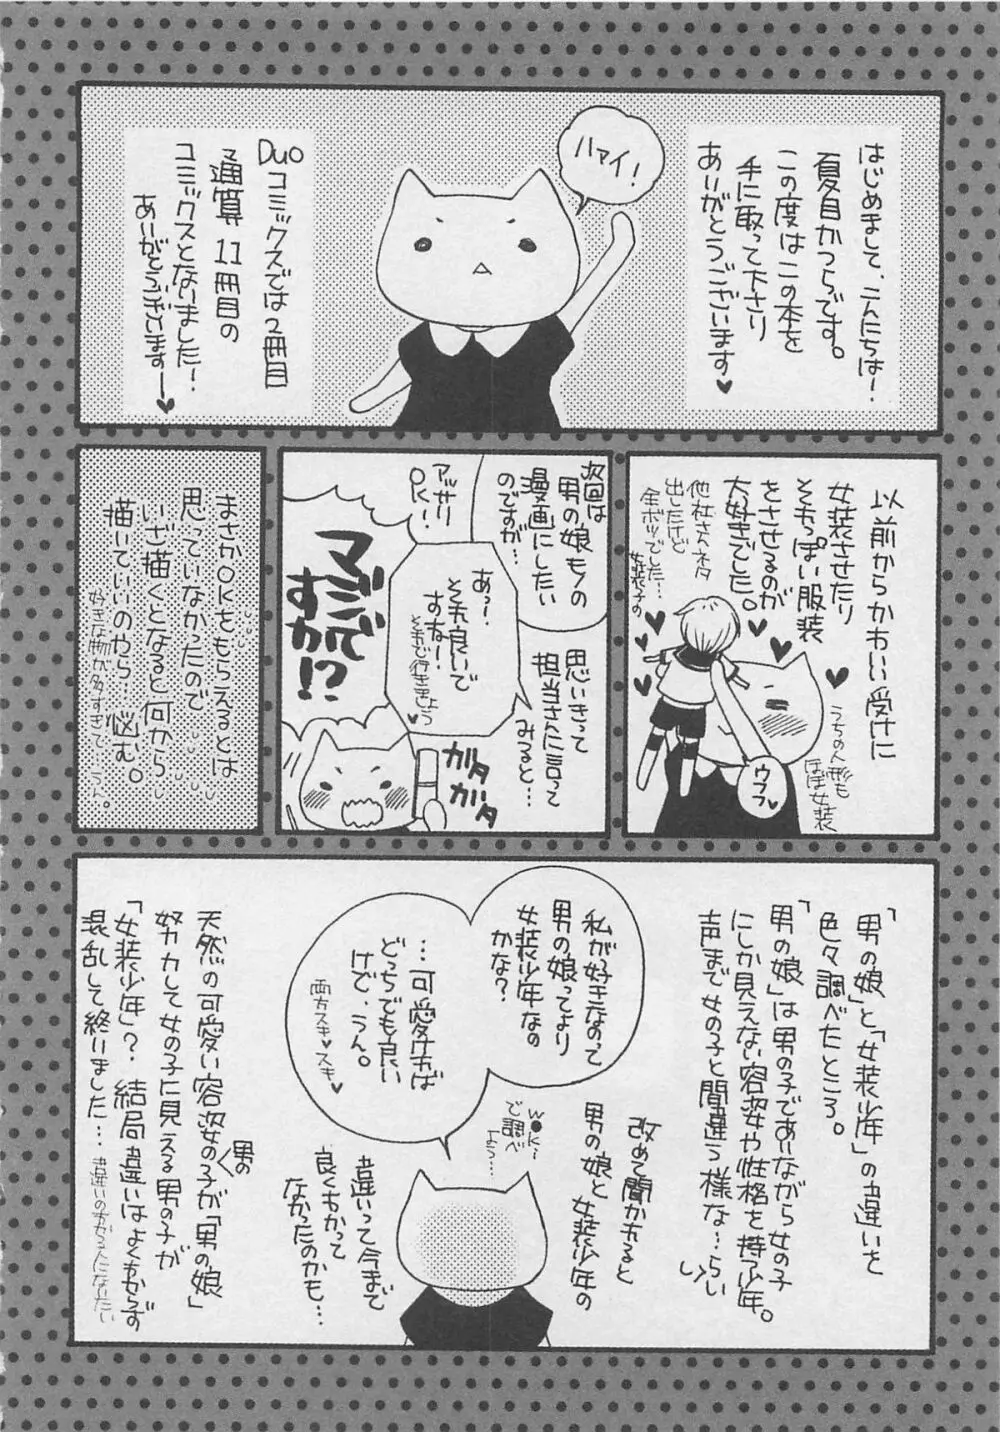 はじめまして、こんにちは！
夏目かつらです。
この度はこの本を
手に取って下さり
ありがとうございます♥
ハァイ！
Duoコミックスでは2冊目
通算11冊目の
コミックスとなりました！
ありがとうございますー♥
以前からかわい受けに
女装させたり
それっぽい服装
をさせるのが
大好きでした。
他社さんネタ
出したけど
全ボツでした…
女装子の
うちの人形も
ほぼ女装
ウフフ♥
次回は
男の娘もの
漫画にしたい
のですが…
思いきって
担当さんに言って
みると…
あっ！
それ良いで
すねー！
それで行きましょう♥
アッサリ
OK！
マジで
すか!?
ガタ
ガタ
まさかOKをもらえるとは
思っていなかったので
いざ描くとなると何から
描いていいのやら…悩む。
好きな物が多すぎて、うん。
「男の娘」と「女装少年」の違いを
色々調べたところ。
「男の娘」は男の子でありながら女の子
にしか見えない容姿や性格を持つ少年。
声まで女の子と間違う様な…らしい
改めて聞かれると
男の娘と女装少年の
違いって今まで
良くわかって
なかったのかも…
w●k…
で調べ
よう…
私が好きなのって
男の娘ってより
女装少年なの
かな？
…可愛ければ
どっちでも良い
けど、うん。
両方スキ♥スキ♥
天然の可愛い容姿の男の子が「男の娘」
努力して女の子に見える男の子が
「女装少年」？結局違いはよくわからず
混乱して終りました…
違いのわかる人になりたい